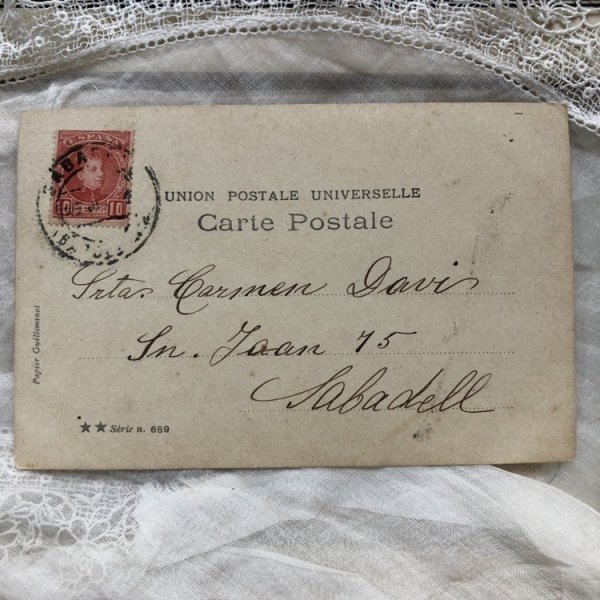 ESPAÑA
10 10
UNION POSTALE UNIVERSELLE
Carte Postale
Srta. Carmen Davis
Sn. Joan 75
Sabadell
Papier Guilleminot
★★ Série n. 689